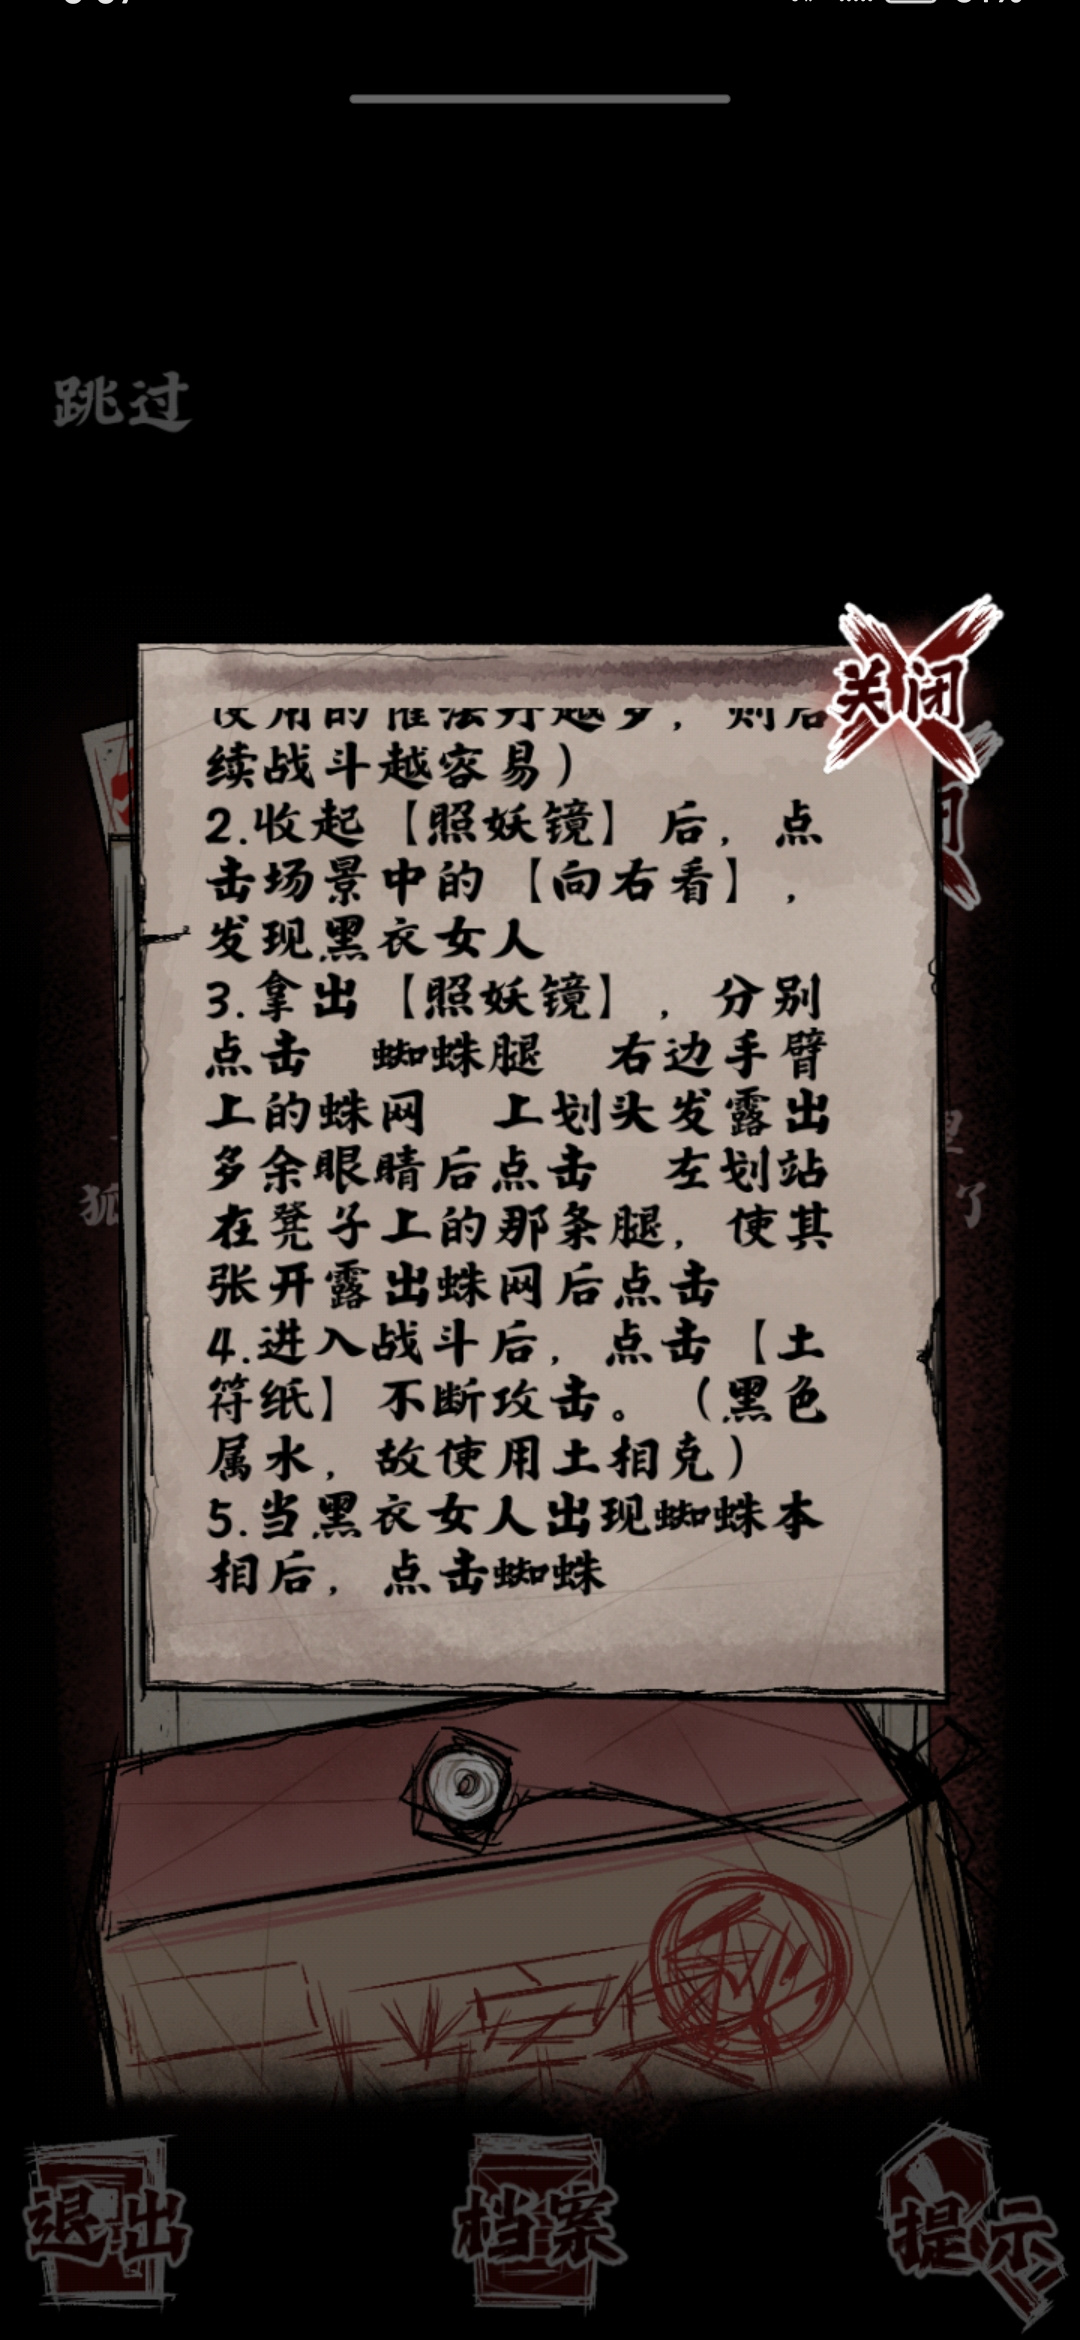 跳过
关闭
使用的催法力越多，则后
续战斗越容易）
2.收起【照妖镜】后，点
击场景中的【向右看】，
发现黑衣女人
3.拿出【照妖镜】，分别
点击 蜘蛛腿 右边手臂
上的蛛网 上划头发露出
多余眼睛后点击 左划站
在凳子上的那条腿，使其
张开露出蛛网后点击
4.进入战斗后，点击【土
符纸】不断攻击。（黑色
属水，故使用土相克）
5.当黑衣女人出现蜘蛛本
相后，点击蜘蛛
狐
了
退出
档案
提示